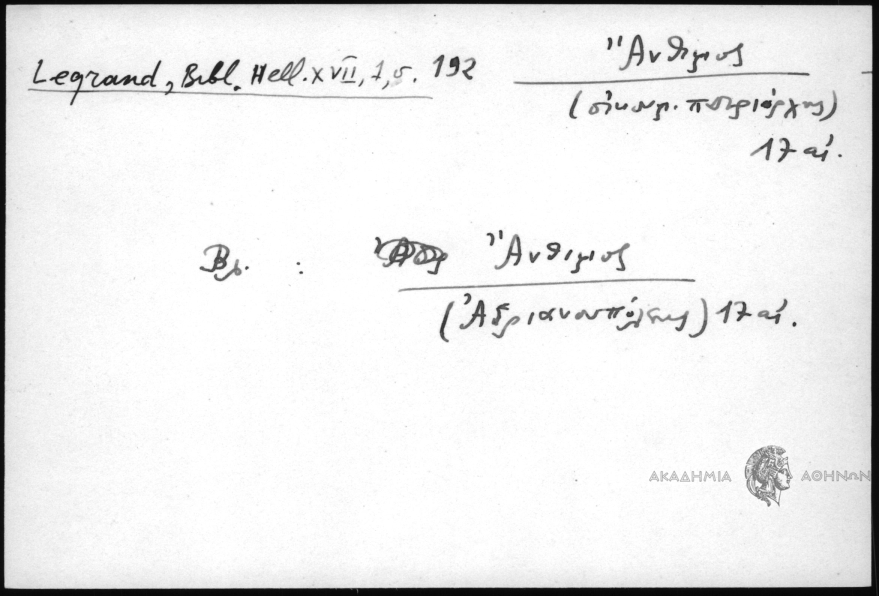 Legrand, Bibl. Hell. XVII, 1, σ. 192
Ἄνθιμος
(οἰκουμ. πατριάρχης)
17 αἰ.
Βλ. : Ἄνθιμος
(Ἀδριανουπόλεως) 17 αἰ.
ΑΚΑΔΗΜΙΑ ΑΘΗΝΩΝ